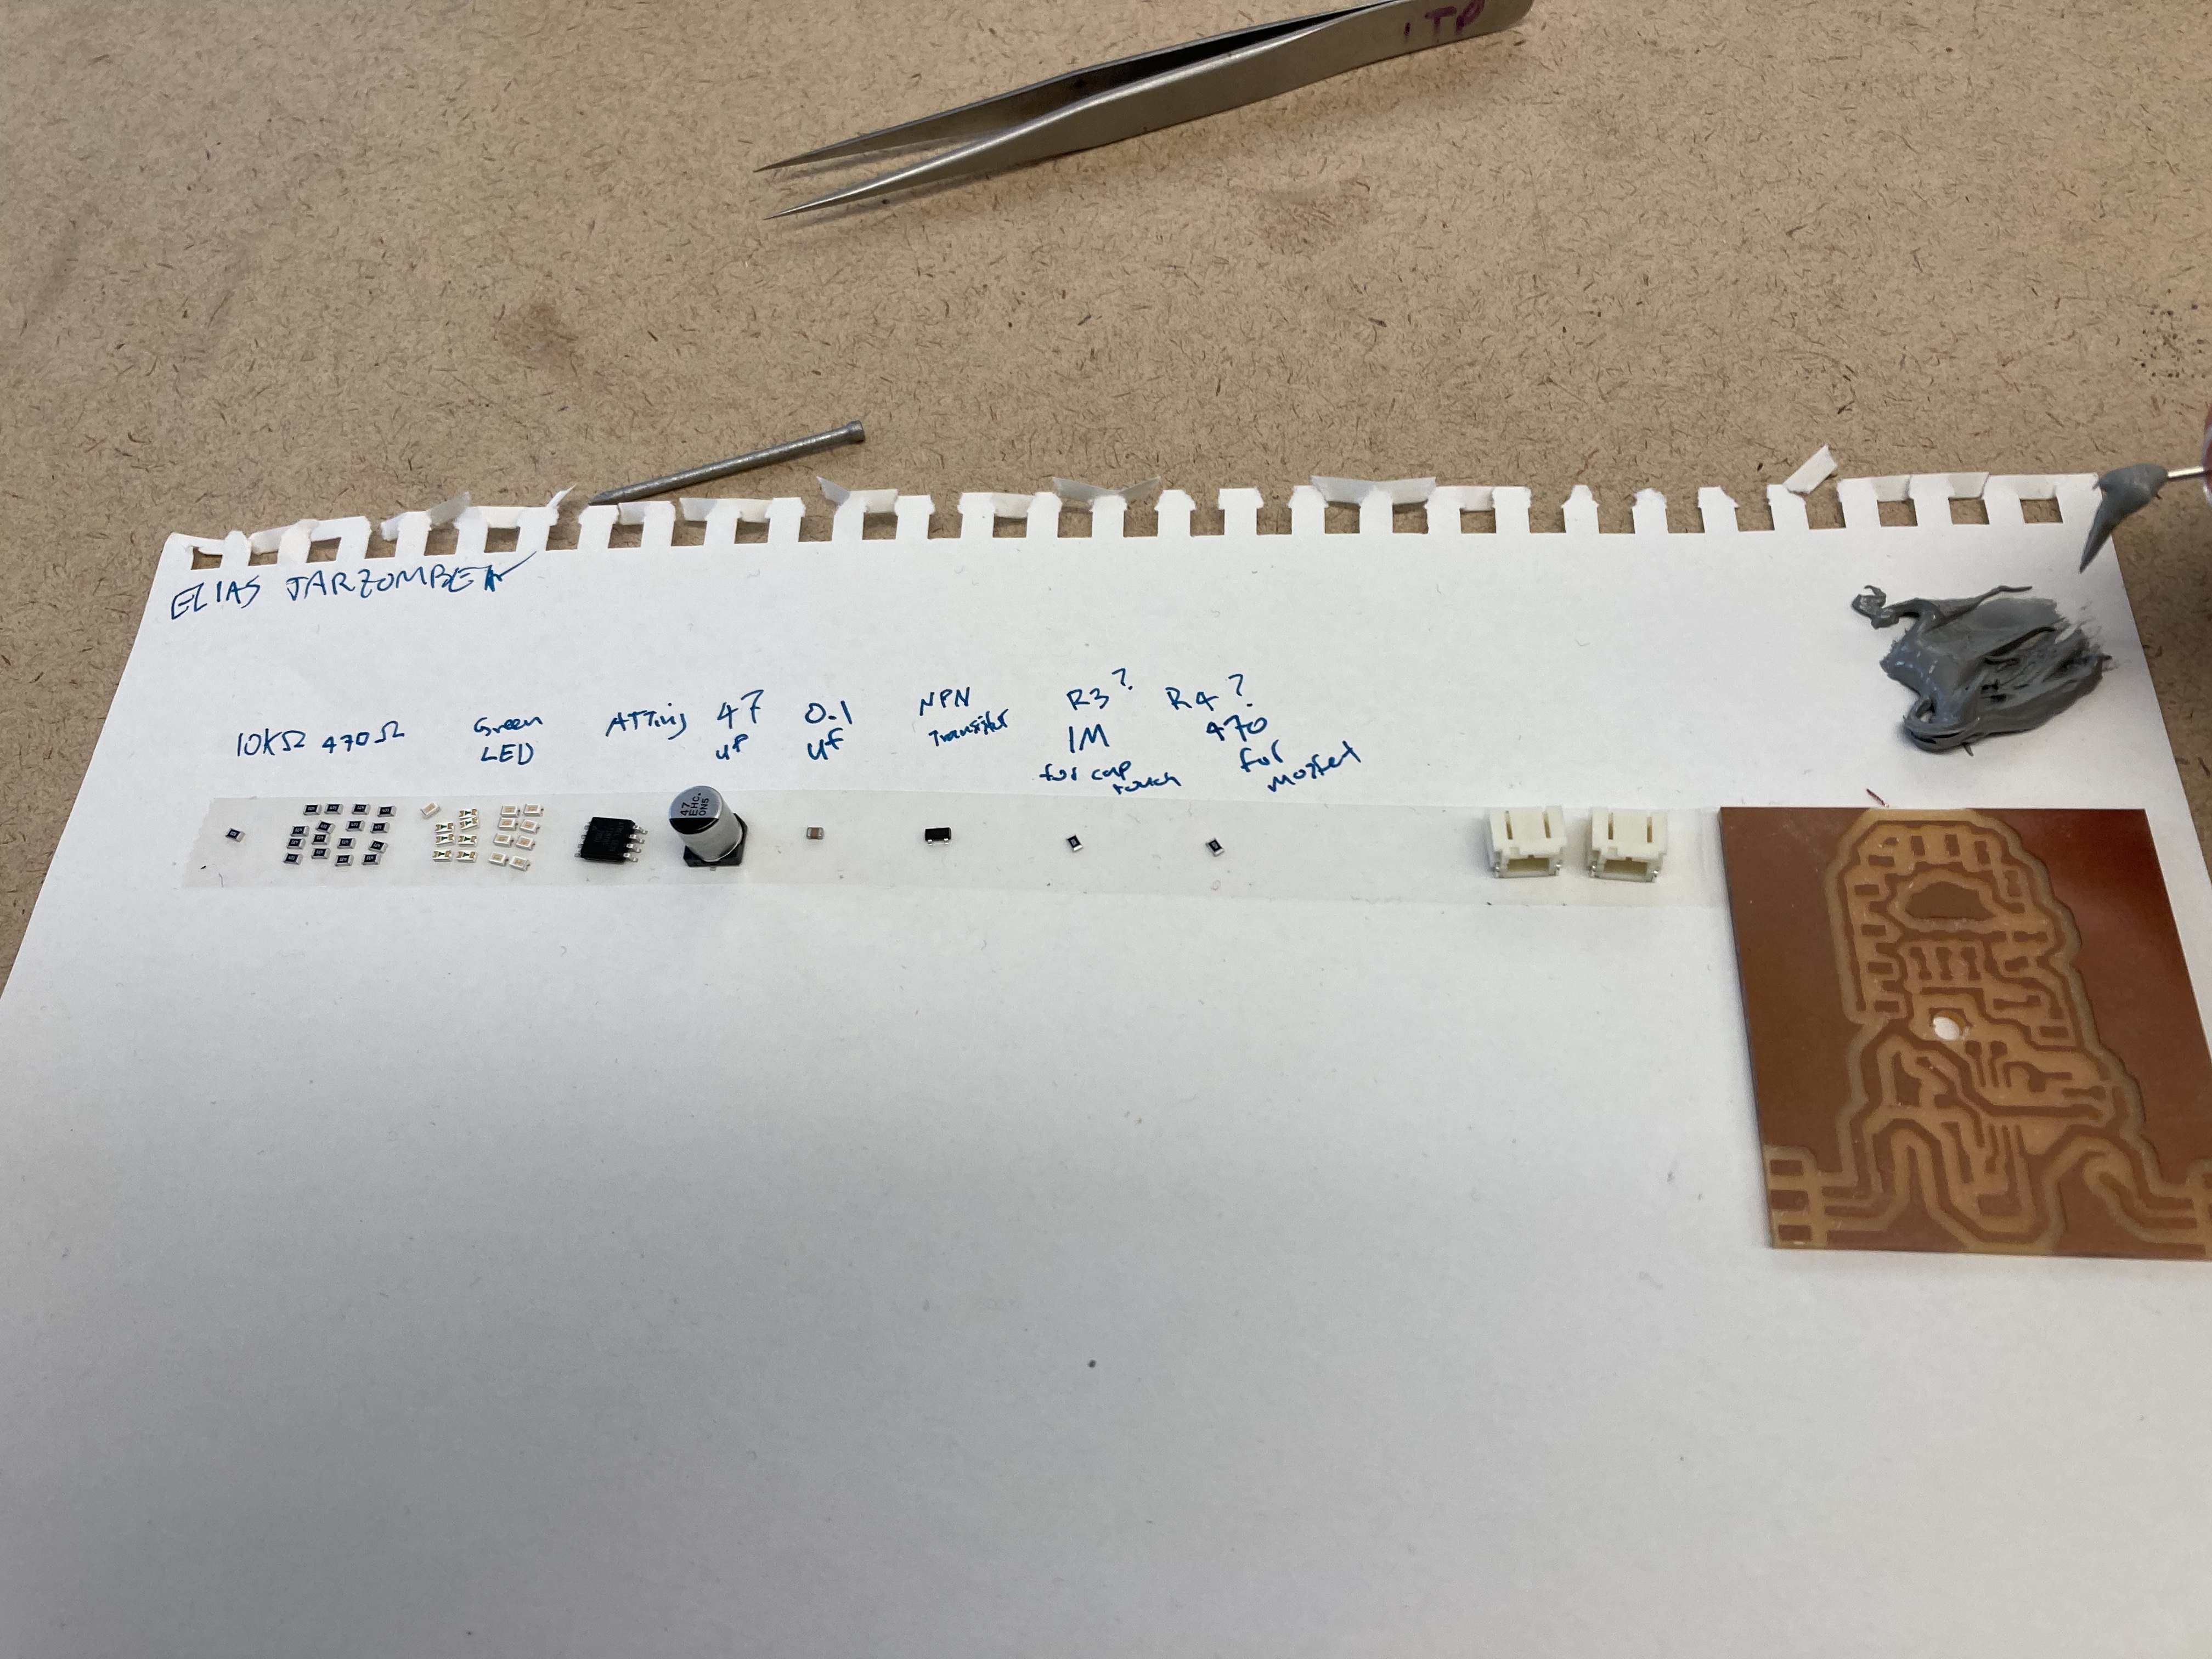 ITP
ELIAS JARZOMBEK
10KΩ 470Ω
Green
LED
ATTiny
47
uF
0.1
uf
NPN
Transistor
R3?
1M
for cap
touch
R4?
470
for
mosfet
47
EHC.
ONS